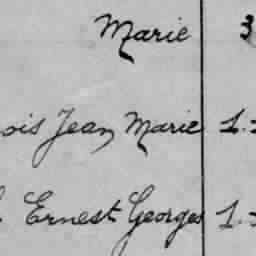 Marie 3
ois Jean Marie 1.
Ernest Georges 1.